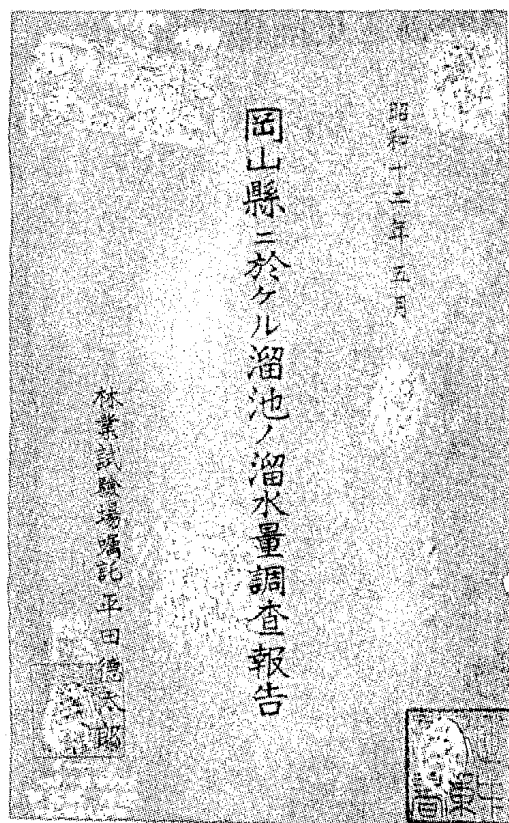 昭和十二年五月
岡山縣ニ於ケル溜池ノ溜水量調査報告
林業試験場嘱託平田徳太郎